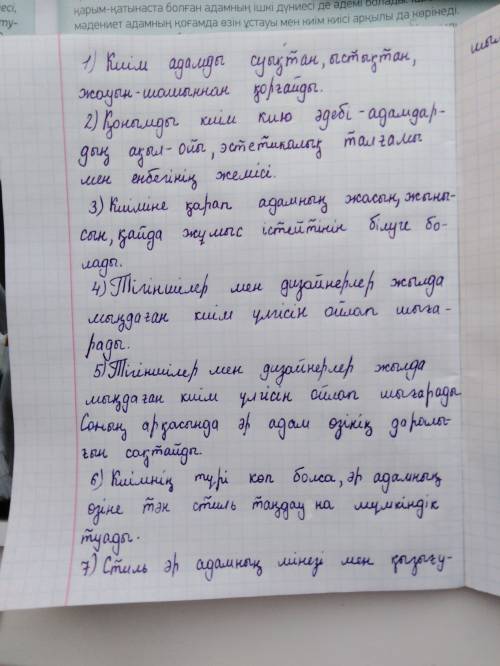 қарым-қатынаста болған адамның ішкі дүниесі де әдемі болады.
мәдениет адамның қоғамда өзін ұстауы мен киім киісі арқылы да көрінеді.
1) Киім адамды суықтан, ыстықтан,
жауын-шашыннан қорғайды.
2) Қонымды киім кию әдебі - адамдар-
дың ақыл-ойы, эстетикалық талғамы
мен еңбегінің жемісі.
3) Киіміне қарап адамның жасын, жыны-
сын, қайда жұмыс істейтінін білуге бо-
лады.
4) Тігіншілер мен дизайнерлер жылда
мыңдаған киім үлгісін ойлап шыға-
рады.
5) Тігіншілер мен дизайнерлер жылда
мыңдаған киім үлгісін ойлап шығарады
Соның арқасында әр адам өзінің даралы-
ғын сақтайды.
6) Киімнің түрі көп болса, әр адамның
өзіне тән стиль таңдауна мүмкіндік
туады.
7) Стиль әр адамның мінезі мен қызығу-